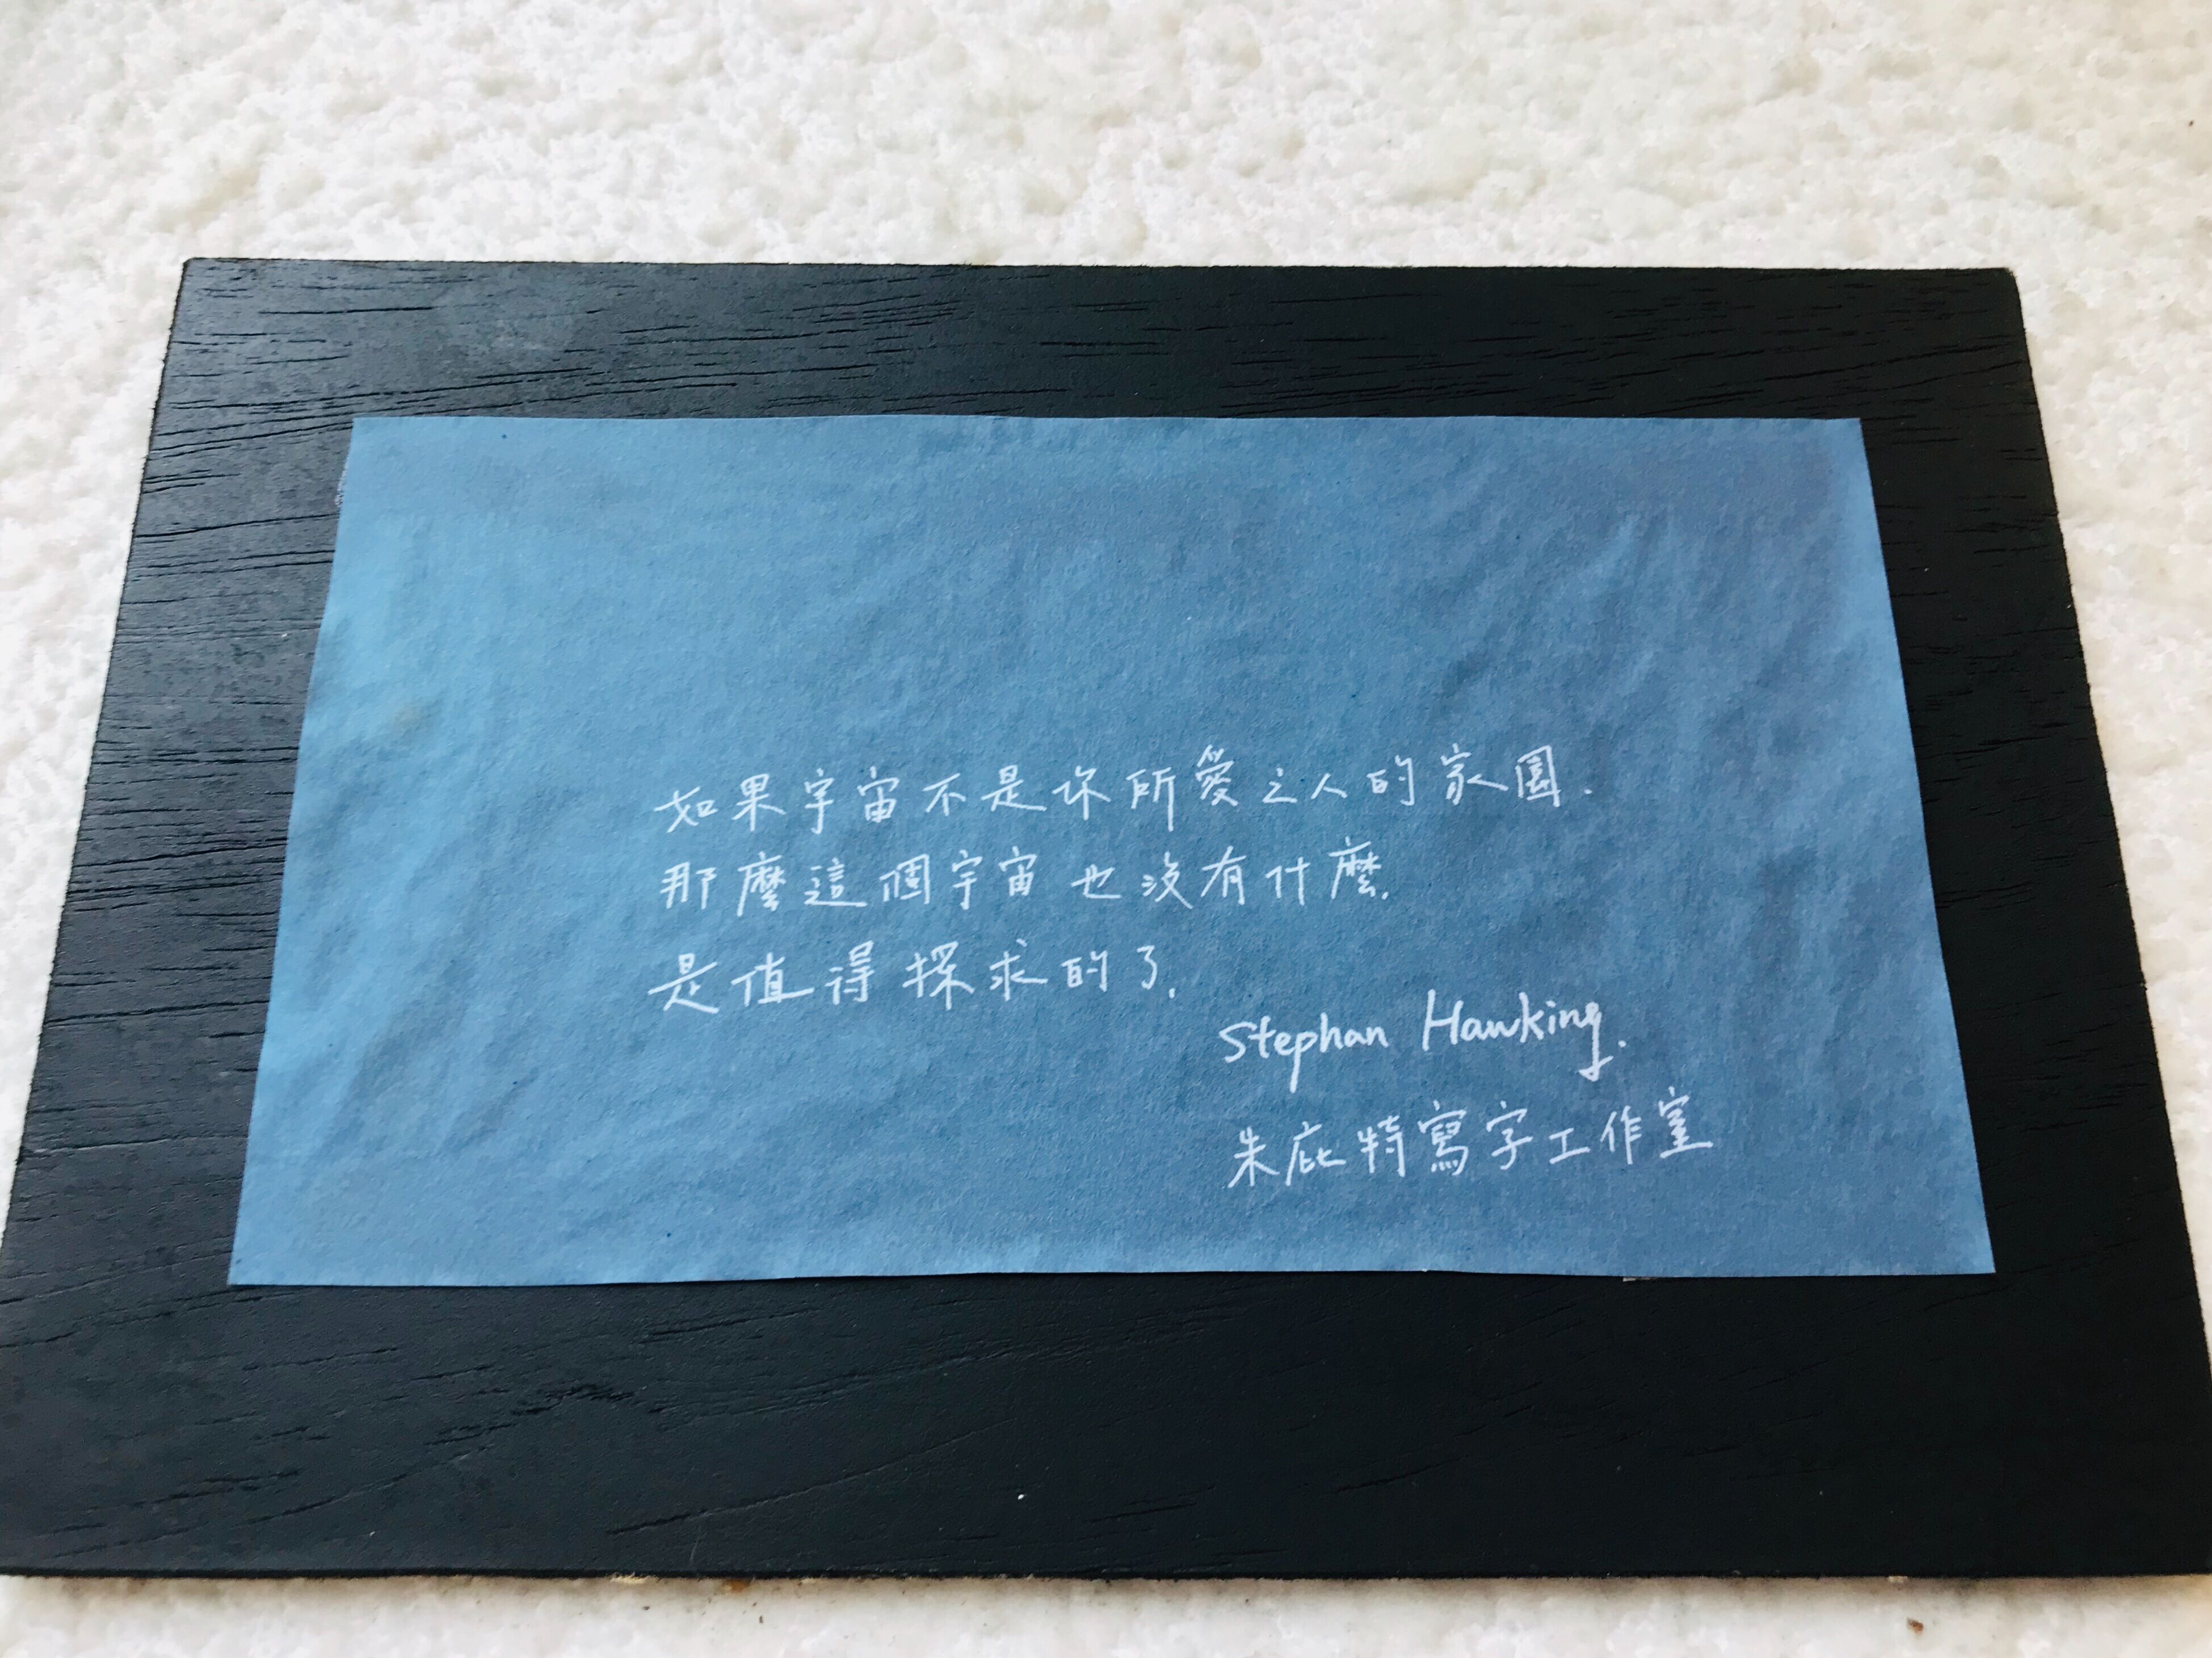 如果宇宙不是你所愛之人的家園.
那麼這個宇宙也沒有什麼.
是值得探求的了.
Stephan Hawking.
朱庇特寫字工作室